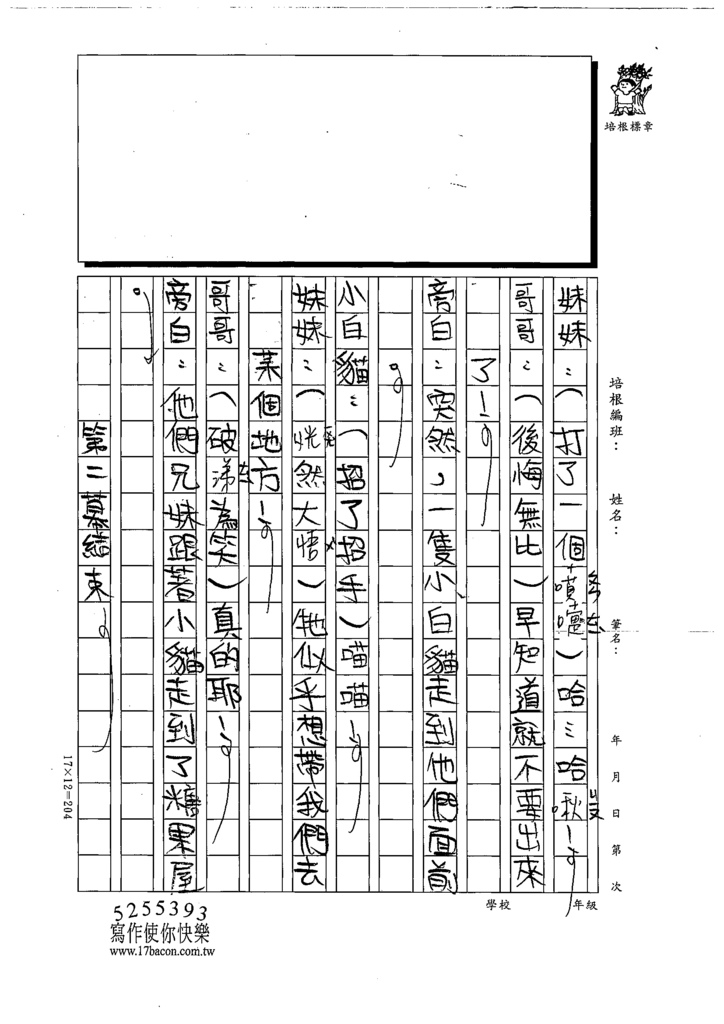 培根標章
培根編班： 姓名： 筆名： 年 月 日 第 次
學校 年級
妹妹：（打了一個噴嚏）哈…哈啾！
哥哥：（後悔無比）早知道就不要出來
了！
旁白：突然，一隻小白貓走到他們面前
。
小白貓：（招了招手）喵喵！
妹妹：（恍然大悟）牠似乎想帶我們去
某個地方！
哥哥：（破涕為笑）真的耶！
旁白：他們兄妹跟著小貓走到了糖果屋
。
第二幕結束
17×12=204
5255393
寫作使你快樂
www.17bacon.com.tw